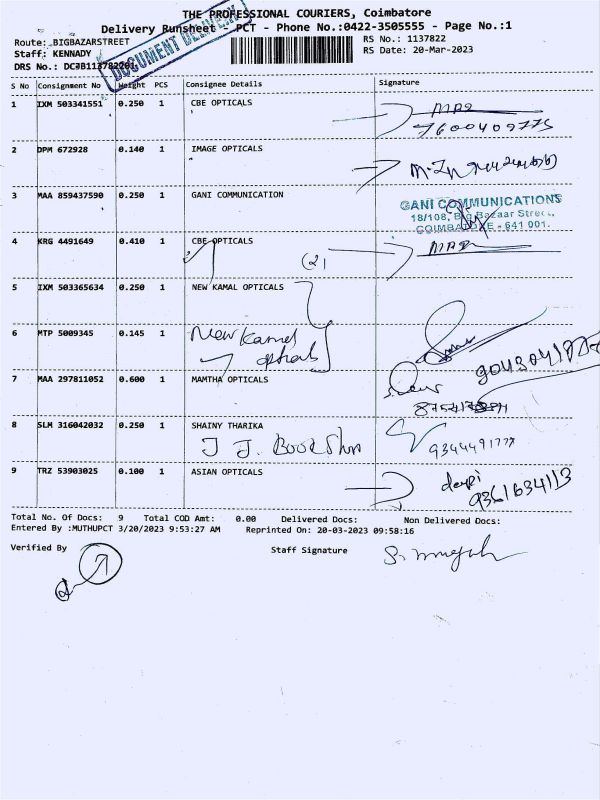 THE PROFESSIONAL COURIERS, Coimbatore
Delivery Runsheet - PCT - Phone No.:0422-3505555 - Page No.:1
Route: BIGBAZARSTREET
RS No.: 1137822
Staff: KENNADY
RS Date: 20-Mar-2023
DRS No.: DCJB1137822201
DOCUMENT DELIVERY
S No Consignment No Weight PCS Consignee Details Signature
1 IXM 503341551 0.250 1 CBE OPTICALS
7600409775
2 DPM 672928 0.140 1 IMAGE OPTICALS
3 MAA 859437590 0.250 1 GANI COMMUNICATION
GANI COMMUNICATIONS
18/108, Big Bazaar Street,
COIMBATORE - 641 001.
4 KRG 4491649 0.410 1 CBE OPTICALS
(2)
5 IXM 503365634 0.250 1 NEW KAMAL OPTICALS
6 MTP 5009345 0.145 1 New Kamal
opticals
7 MAA 297811052 0.600 1 MAMTHA OPTICALS
8 SLM 316042032 0.250 1 SHAINY THARIKA
J J. BOOK Shn
9344491777
9 TRZ 53903025 0.100 1 ASIAN OPTICALS
9361634113
Total No. Of Docs: 9 Total COD Amt: 0.00 Delivered Docs: Non Delivered Docs:
Entered By :MUTHUPCT 3/20/2023 9:53:27 AM Reprinted On: 20-03-2023 09:58:16
Verified By Staff Signature